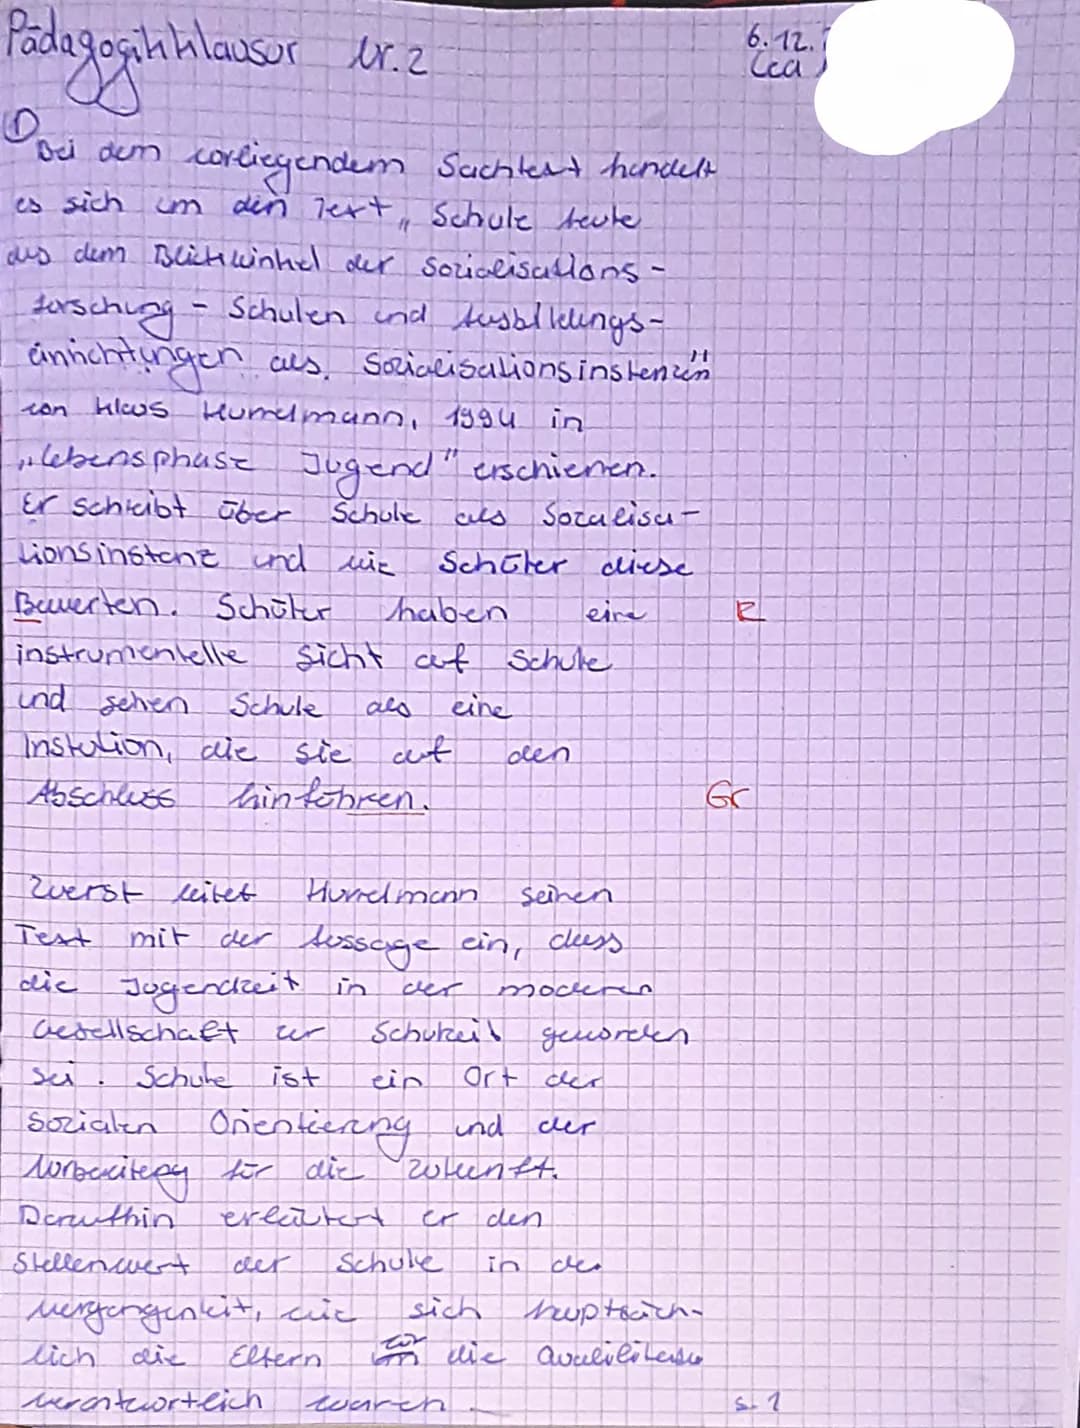 Pädagogikklausur Nr. 2
6.12.
Lea
①
Bei dem vorliegendem Sachtext handelt
es sich um den Text „Schule heute
aus dem Blickwinkel der Sozialisations-
forschung - Schulen und Ausbildungs-
einrichtungen als Sozialisationsinstanzen"
von Klaus Hurrelmann, 1994 in
„Lebensphase Jugend" erschienen.
Er schreibt über Schule als Sozialisa-
tionsinstanz und wie Schüler diese
Bewerten. Schüler haben eine R
instrumentelle Sicht auf Schule
und sehen Schule als eine
Instution, die sie auf den
Abschluss hinführen. Gr
Zuerst leitet Hurrelmann seinen
Text mit der Aussage ein, dass
die Jugendzeit in der modernen
Gesellschaft zur Schulzeit geworden
sei. Schule ist ein Ort der
sozialen Orientierung und der
Vorbereitung für die Zukunft.
Daraufhin erläutert er den
Stellenwert der Schule in der
Vergangenheit, wie sich hauptsäch-
lich die Eltern für die
verantwortlich waren
S. 1